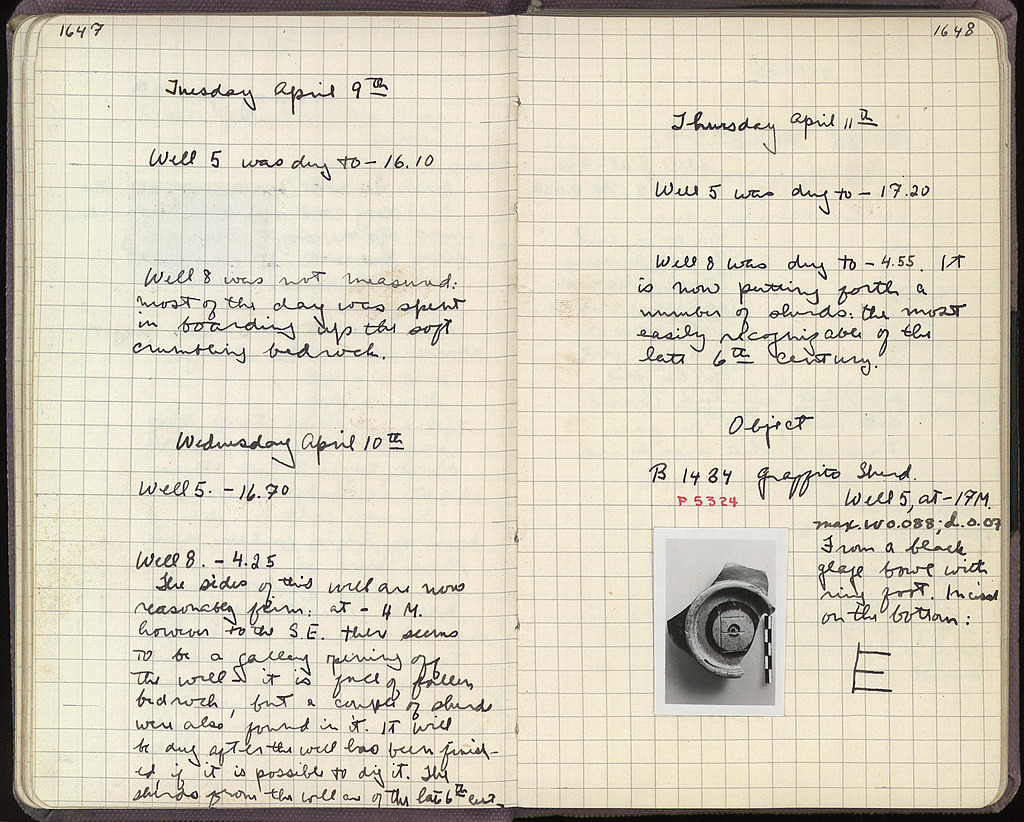 1647
Tuesday April 9th
Well 5 was dug to – 16.10
Well 8 was not measured:
most of the day was spent
in boarding up the soft
crumbling bedrock.
Wednesday April 10th
Well 5. – 16.70
Well 8. – 4.25
The sides of this well are now
reasonably firm: at – 4 M.
however to the S.E. there seems
to be a gallery opening off
the well – it is full of fallen
bedrock, but a couple of sherds
were also found in it. It will
be dug after the well has been finish-
ed, if it is possible to dig it. The
sherds from the well are of the late 6th cent.
1648
Thursday April 11th
Well 5 was dug to – 17.20
Well 8 was dug to – 4.55. It
is now putting forth a
number of sherds: the most
easily recognizable of the
late 6th century.
Object
B 1434 Graffito Sherd.
P 5324
Well 5, at – 17M.
max. W 0.088; d. 0.07
From a black
glaze bowl with
ring foot. Incised
on the bottom:
E